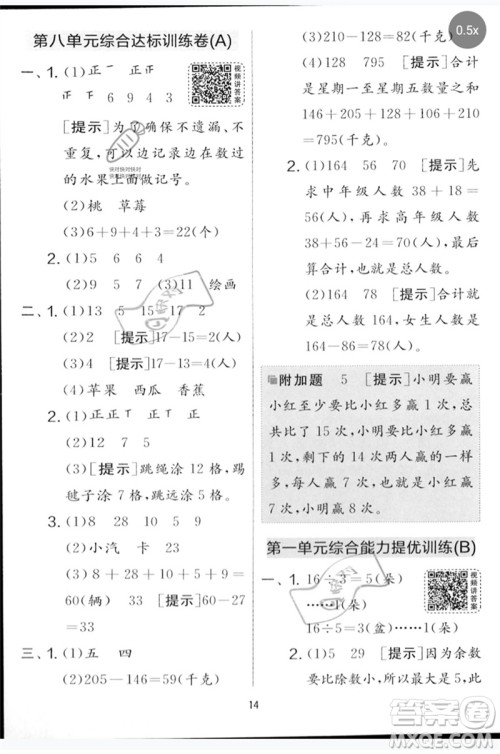 第八单元综合达标训练卷(A)
一、1. (1)正 正一
6 9 4 3
[提示]为了确保不漏、不
重复,可以边记录边在数过
的水果上面做记号。
(2)桃 草莓
(3)6+9+4+3=22(个)
2. (1)5 6 6 4
(2)9 7 (3)11 绘画
二、1. (1)13 5 15 17 2
(2)2 [提示]17-15=2(人)
(3)4 [提示]17-13=4(人)
(4)苹果 西瓜 香蕉
2. (1)正正 正正
(2)12 7 9
(3)[提示]跳绳涂12格,踢
毽子涂7格,跳远涂9格。
3. (1)8 28 29 10 5
(2)小汽 卡 23
(3)8+29+28+10+5=
60(辆) 33 [提示]60-27
=33
三、1. (1)五 四
(2)205-146=59(千克)
(3)210-128=82(千克)
(4)128 795 [提示]合计
是星期一至星期五的数量之
和,146+205+188+128+128=
795(千克)
2. (1)164 56 70 [提示]先
求中年级人数 38+18=
56(人),再求高年级人数
164-56-38=70(人),最
后算合计,也就是总人数。
(2)164 78 [提示]合计也
就是总人数 164,女生人数
164-86=78(人)。
附加题 5 [提示]小明要赢
小红至少要比小红多赢1次,总
共比了15次,小明和小红赢的
次数最多一样,小明要比小红多
赢1次,小明赢8次。
第一单元综合能力提优训练(B)
一、1. 16÷3=5(朵)
……1(朵)
16÷5=3(盆)……1(朵)
2. 5 [提示]因为余数要
比除数小,最大是5,此
14
0.5x
视频讲答案
视频讲答案
答案圈